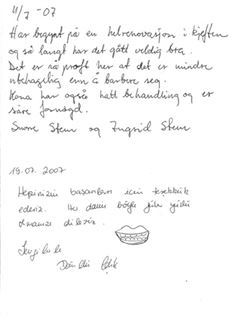 11/7 -07
Har begynt på en helrenovasjon i kjeften
og så langt har det gått veldig bra.
Det er så proft her at det er mindre
ubehagelig enn å barbere seg.
Kona har også hatt behandling og er
såre fornøgd.
Snorre Stem og Ingrid Stem
19.07.2007
Hepinizin başarıları için teşekkür
ederiz. Her daim böyle güler yüzlü
olmanızı dileriz.
Sevgilerle